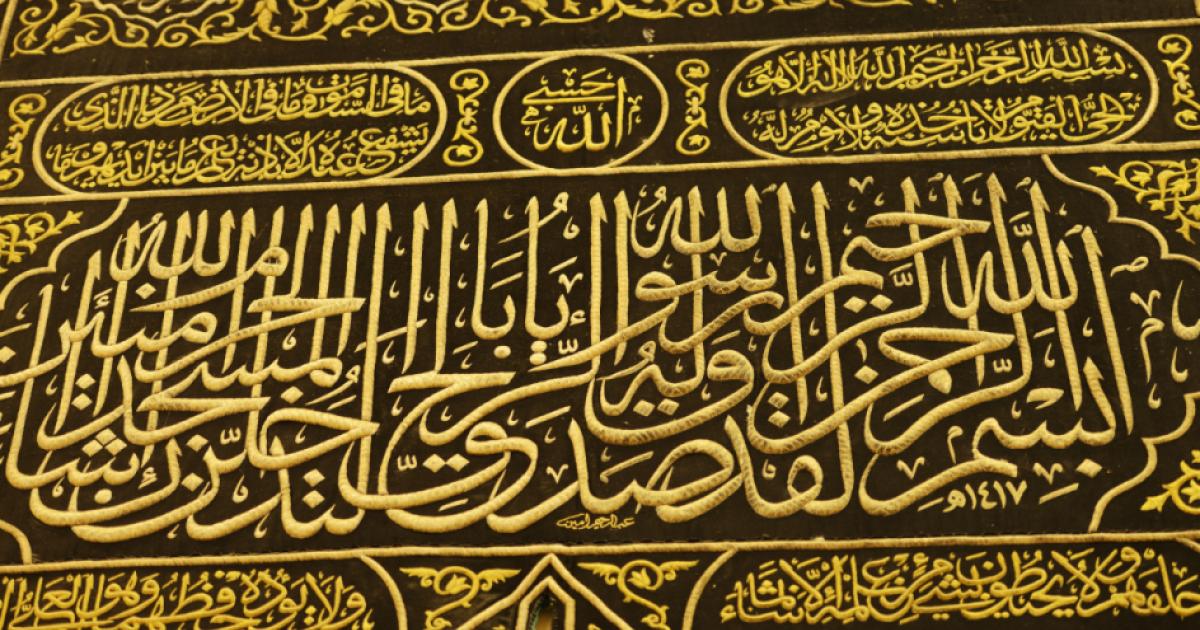 بسم الله الرحمن الرحيم الله لا إله إلا هو
الحي القيوم لا تأخذه سنة ولا نوم له
حسبي
الله
ما في السموات وما في الأرض من ذا الذي
يشفع عنده إلا بإذنه يعلم ما بين أيديهم وما
بسم الله الرحمن الرحيم لقد صدق الله رسوله الرءيا بالحق لتدخلن المسجد الحرام إن شاء الله ءامنين
١٤١٧هـ
عبدالرحيم أمين
خلفهم ولا يحيطون بشيء من علمه إلا بما شاء
ولا يؤده حفظهما وهو العلي